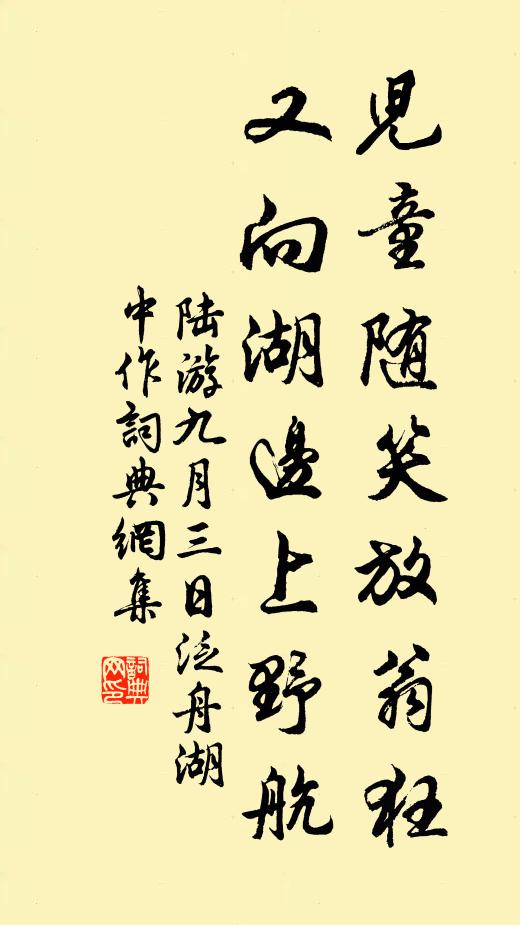 兒童随笑放翁狂
又向湖邊上野航
陆游九月三日泛舟湖
中作詞典網集
詞典网印